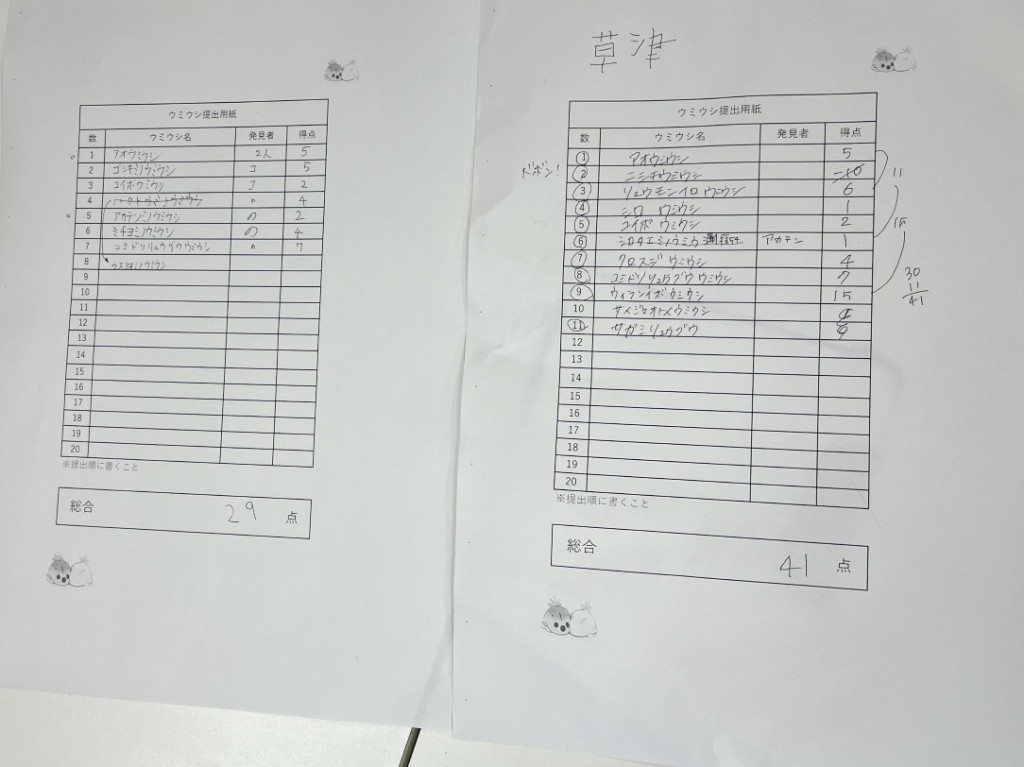 ウミウシ提出用紙
数 ウミウシ名 発見者 得点
1 アオウミウシ 2人 5
2 ゴシキミノウミウシ コ 5
3 コイボウミウシ コ 2
4 〃 4
5 アカテンミノウミウシ の 2
6 ミチヨミノウミウシ の 4
7 コミドリリュウグウウミウシ 〃 7
8
9
10
11
12
13
14
15
16
17
18
19
20
※提出順に書くこと
総合 29 点
草津
ウミウシ提出用紙
数 ウミウシ名 発見者 得点
1 アオウミウシ 5
ドボン! 2 ニシキウミウシ -10
3 リュウモンイロウミウシ 6 11
4 シロウミウシ 1
5 コイボウミウシ 2
6 シロタエミノウミウシ アカテン 1 15
7 クロスジウミウシ 4
8 コミドリリュウグウウミウシ 7
9 ウィランイボウミウシ 15
10 サメジマオトメウミウシ
11 サガミリュウグウ
30
11
41
12
13
14
15
16
17
18
19
20
※提出順に書くこと
総合 41 点